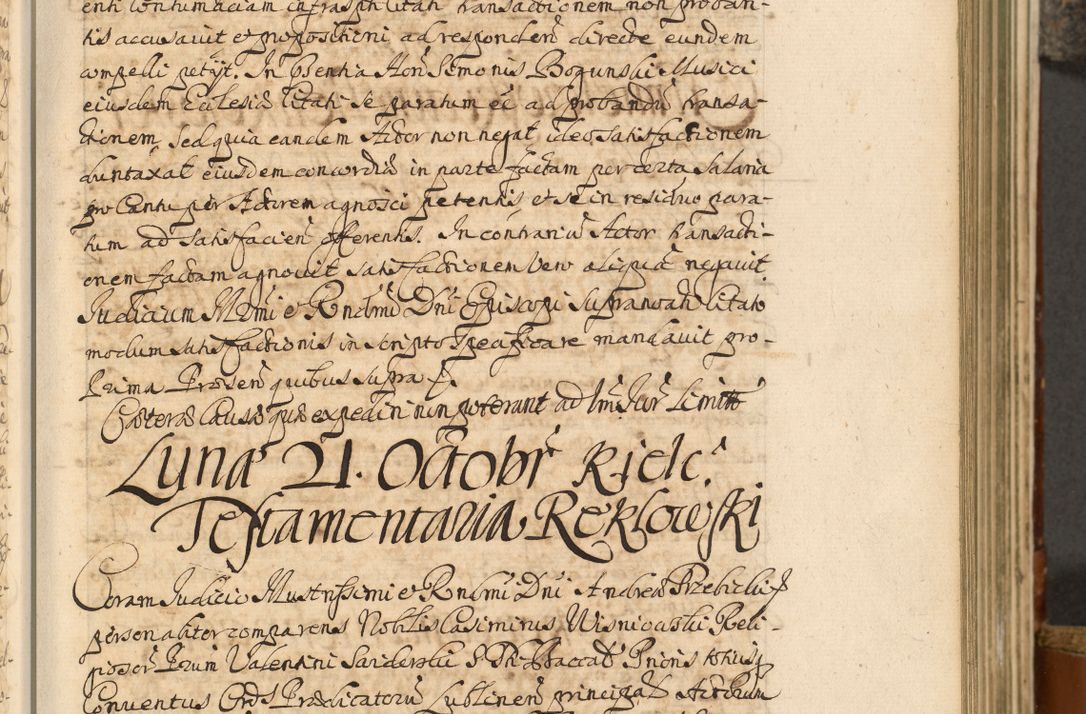 enti contumaciam infraspti litati transactionem non proban-
tis accusavit et propositioni ad responden directe eundem
compelli petijt. In psentia Hon Simonis Bogunski Musici
eiusdem Ecclesiæ litati se paratum eē ad probandū transa-
ctionem, sed quia eandem Actor non negat ideo satisfactionem
duntaxat eiusdem concordiæ in parte factam per certa salaria
pro Cantu per Actorem agnosci petentis, et se in residuo para-
tum ad satisfacien offerentis. In contrariū Actor transacti-
onem factam agnovit satisfactionem vero aliquā negavit.
Judicium Illmi et Rndmi Dni Episcopi supranoati litato
modum satisfactionis in scripto specificare mandavit pro
Prima Præsen quibus supra
Cæteræ Causæ quæ expediri non poterant ad Im Jur Limitt
Luna 21. Octobr Kielc.
Testamentaria Reklowski
Coram Judicio Illustrissimi et Rndmi Dni Andreæ Trzebicki
personaliter comparens Nobilis Casimirus Wisniowski Reli-
giosor Prum Valentini Sandecki S Th Baccal Prioris totiusq
Conventus Ord Prædicatorū Lublinen principal Actorum